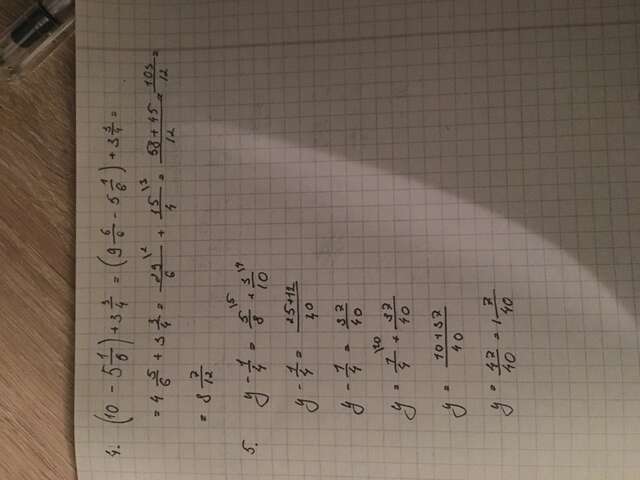 4. (10 - 5 1/6) + 3 3/4 = (9 6/6 - 5 1/6) + 3 3/4 =
= 4 5/6 + 3 3/4 = 29\2/6 + 15\3/4 = 58+45/12 = 103/12 =
= 8 7/12
5. y - 1/4 = 5\5/8 + 3\4/10
y - 1/4 = 25+12/40
y - 1/4 = 37/40
y = 1\20/4 + 37/40
y = 10+37/40
y = 47/40 = 1 7/40